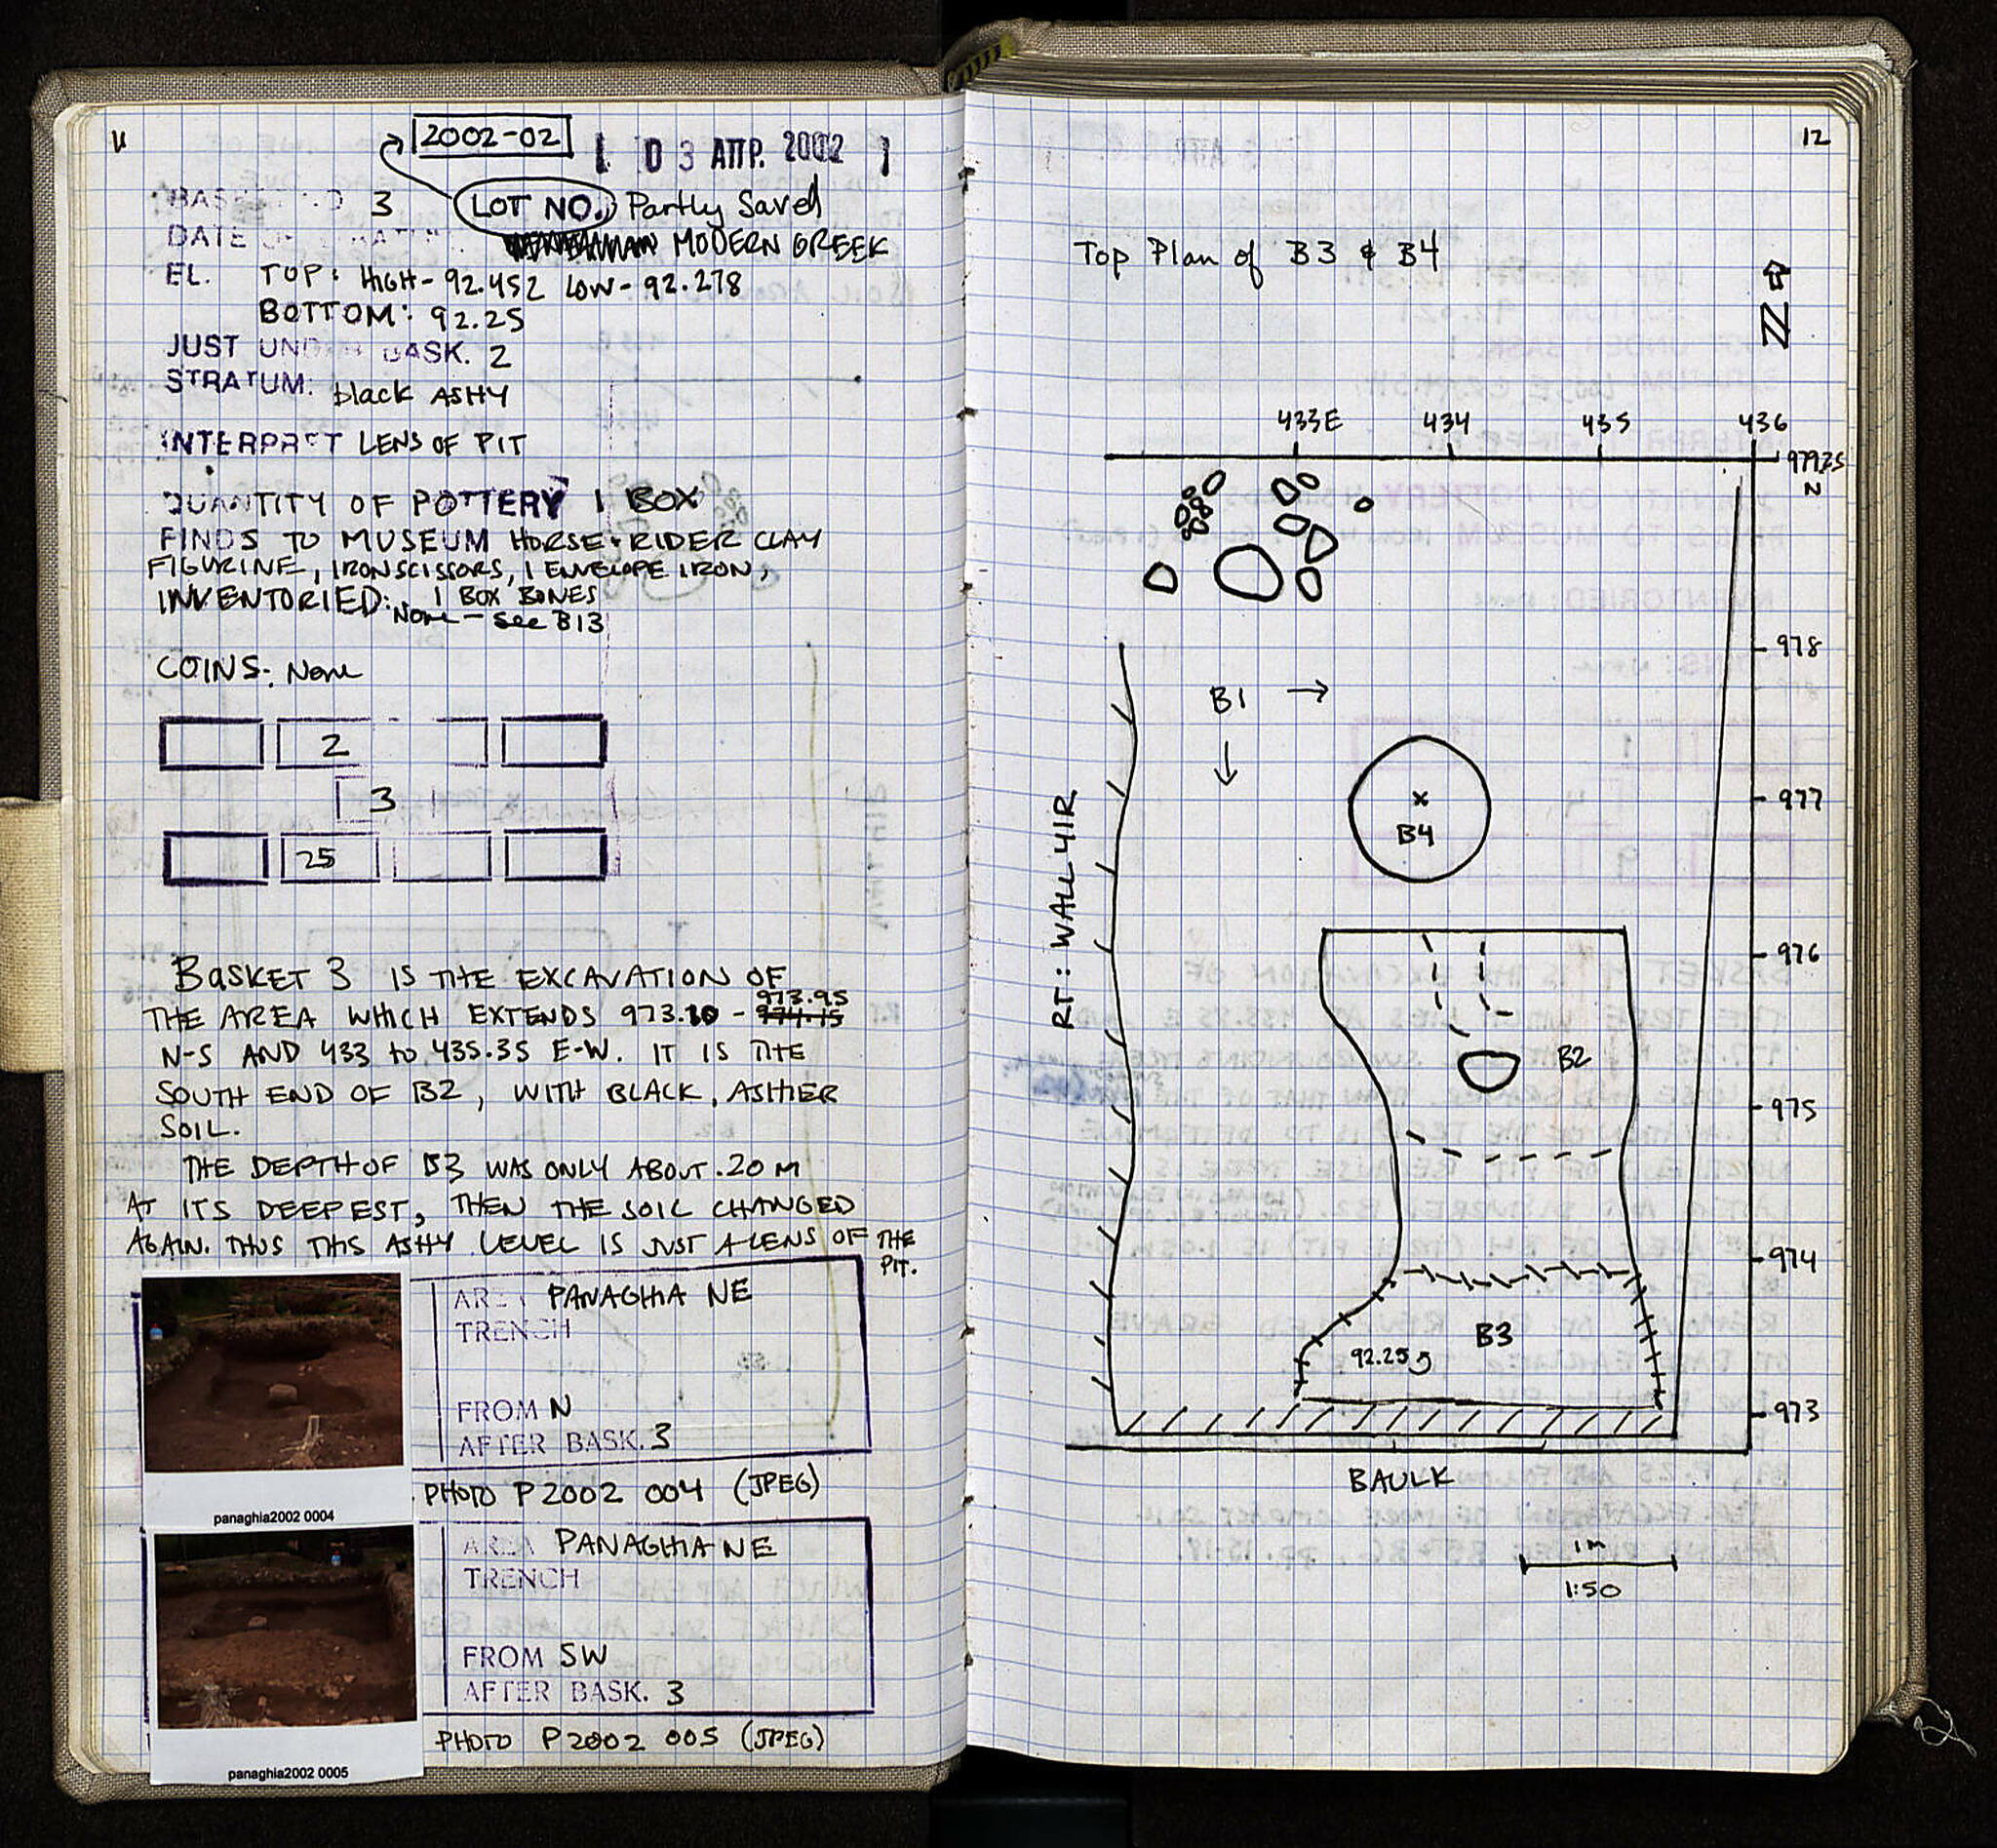 11
2002-02
03 ΑΠΡ. 2002
3 LOT NO. Partly Saved
DATE MODERN GREEK
EL. TOP: HIGH - 92.452 LOW - 92.278
BOTTOM: 92.25
JUST UNDER BASK. 2
STRATUM: black ASHY
INTERPRET LENS OF PIT
QUANTITY OF POTTERY 1 BOX
FINDS TO MUSEUM HORSE + RIDER CLAY
FIGURINE, IRON SCISSORS, 1 ENVELOPE IRON,
1 BOX BONES
INVENTORIED: None - see B13
COINS: None
2
3
25
BASKET 3 IS THE EXCAVATION OF
THE AREA WHICH EXTENDS 973.10 - 974.15 973.95
N-S AND 433 to 435.35 E-W. IT IS THE
SOUTH END OF B2, WITH BLACK, ASHIER
SOIL.
THE DEPTH OF B3 WAS ONLY ABOUT .20 M
AT ITS DEEPEST, THEN THE SOIL CHANGED
AGAIN. THUS THIS ASHY LEVEL IS JUST A LENS OF THE
PIT.
AREA PANAGHIA NE
TRENCH
FROM N
AFTER BASK. 3
PHOTO P2002 004 (JPEG)
panaghia2002 0004
AREA PANAGHIA NE
TRENCH
FROM SW
AFTER BASK. 3
PHOTO P2002 005 (JPEG)
panaghia2002 0005
12
Top Plan of B3 & B4
N
433E 434 435 436
979.25
N
978
B1
977
B4
RT: WALL 41R
976
B2
975
974
B3
92.255
973
BAULK
1m
1:50